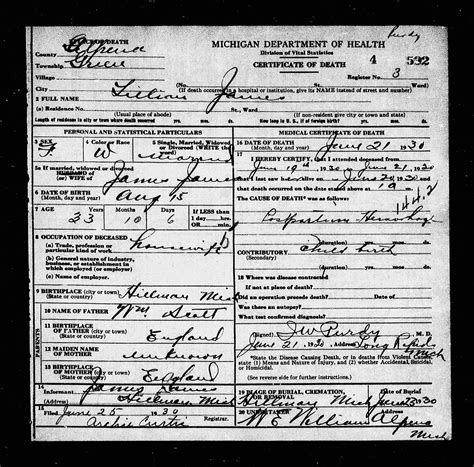 Purdy
PLACE OF DEATH
MICHIGAN DEPARTMENT OF HEALTH
County Alpena
Division of Vital Statistics
4 592
Township Green
CERTIFICATE OF DEATH
Village
Register No. 3
City
No. St., Ward
(If death occurred in a hospital or institution, give its NAME instead of street and number)
2 FULL NAME Lillian James
(a) Residence No. St., Ward
Length of residence in city or town where death occurred yrs. mos. ds. How long in U. S., if of foreign birth? yrs. mos. ds.
PERSONAL AND STATISTICAL PARTICULARS
3 SEX F.
4 Color or Race W
5 Single, Married, Widowed or Divorced (WRITE the word)
5a If married, widowed or divorced
HUSBAND of
(or) WIFE of James James
6 DATE OF BIRTH
(Month, day, year) Aug 15
7 AGE Years Months Days If LESS than 1 day
33 10 6
8 OCCUPATION OF DECEASED
(a) Trade, profession or particular kind of work housewife
(b) General nature of industry, business, or establishment in which employed (or employer)
(c) Name of employer
9 BIRTHPLACE (city or town) Hillman Mich
(State or country)
10 NAME OF FATHER Wm. Scott
11 BIRTHPLACE OF FATHER (city or town)
(State or country) England
12 MAIDEN NAME OF MOTHER unknown
13 BIRTHPLACE OF MOTHER (city or town)
(State or country) England
PARENTS
14 Informant James James
(Address) Hillman Mich
15 Filed June 25 1930
Archie Curtis
MEDICAL CERTIFICATE OF DEATH
16 DATE OF DEATH
(Month, day, year) June 21 1930
17 I HEREBY CERTIFY, That I attended deceased from
June 19th 1930 to June 21 1930
1930 and that
death occurred on the date stated above at
The CAUSE OF DEATH* was as follows:
Postpartum Hemorrhage
CONTRIBUTORY child birth
(Secondary)
18 Where was disease contracted
if not at place of death?
Did an operation precede death? Date of
Was there an autopsy?
What test confirmed diagnosis?
(Signed) J W Purdy M. D.
June 21 1930 (Address) Long Rapids Mich
*State the Disease Causing Death, or in deaths from Violent Causes, state (1) Means and Nature of Injury, and (2) whether Accidental, Suicidal, or Homicidal.
(See reverse side for further instructions)
19 PLACE OF BURIAL, CREMATION, OR REMOVAL Date of Burial
Hillman Mich June 23 1930
20 UNDERTAKER Address
W E Williams Alpena Mich